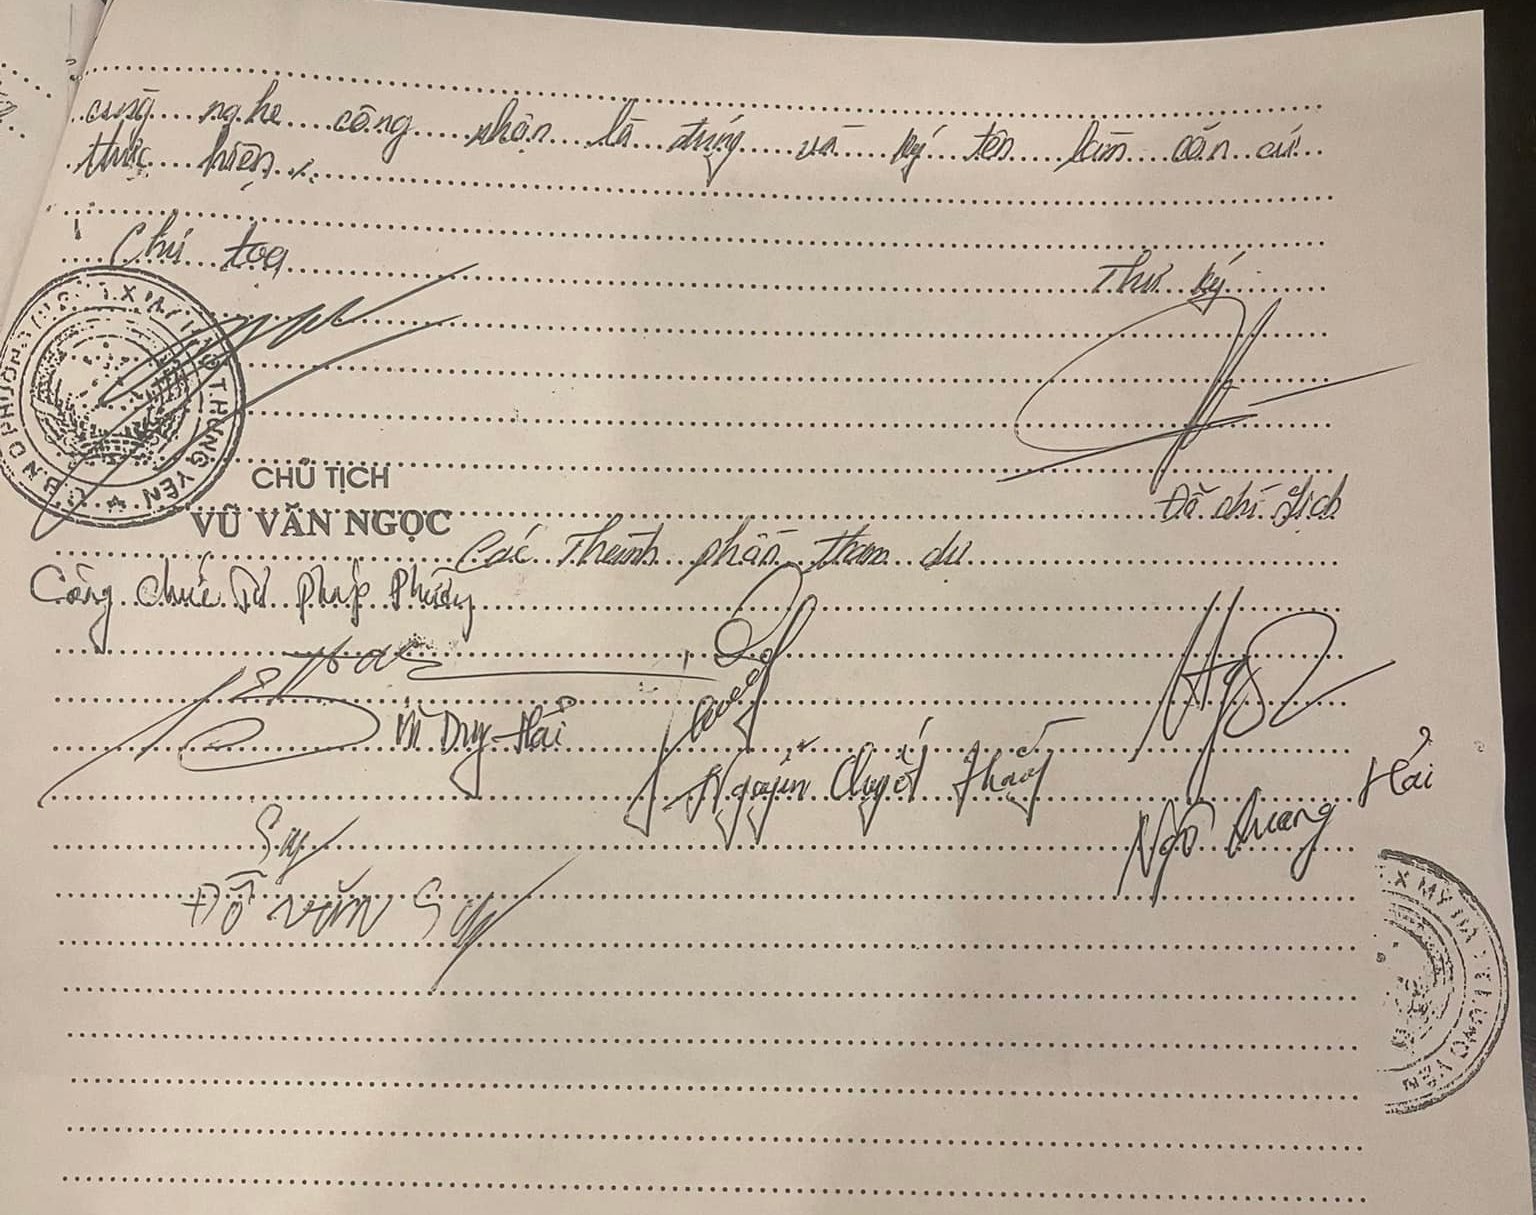 cùng nghe công nhận là đúng và ký tên làm căn cứ
thực hiện ./.
Chủ tọa
Thư ký
CHỦ TỊCH
VŨ VĂN NGỌC
Đỗ chí Lịch
Các Thành phần tham dự
Công chức Tư pháp Phường
Vũ Duy Hải
Nguyễn Quyết Thắng
Ngô Quang Hải
Sự
Đỗ văn Sự
T.X MỸ HÀO T.HƯNG YÊN
U.B.N.D PHƯỜNG
T.X MỸ HÀO T.HƯNG YÊN